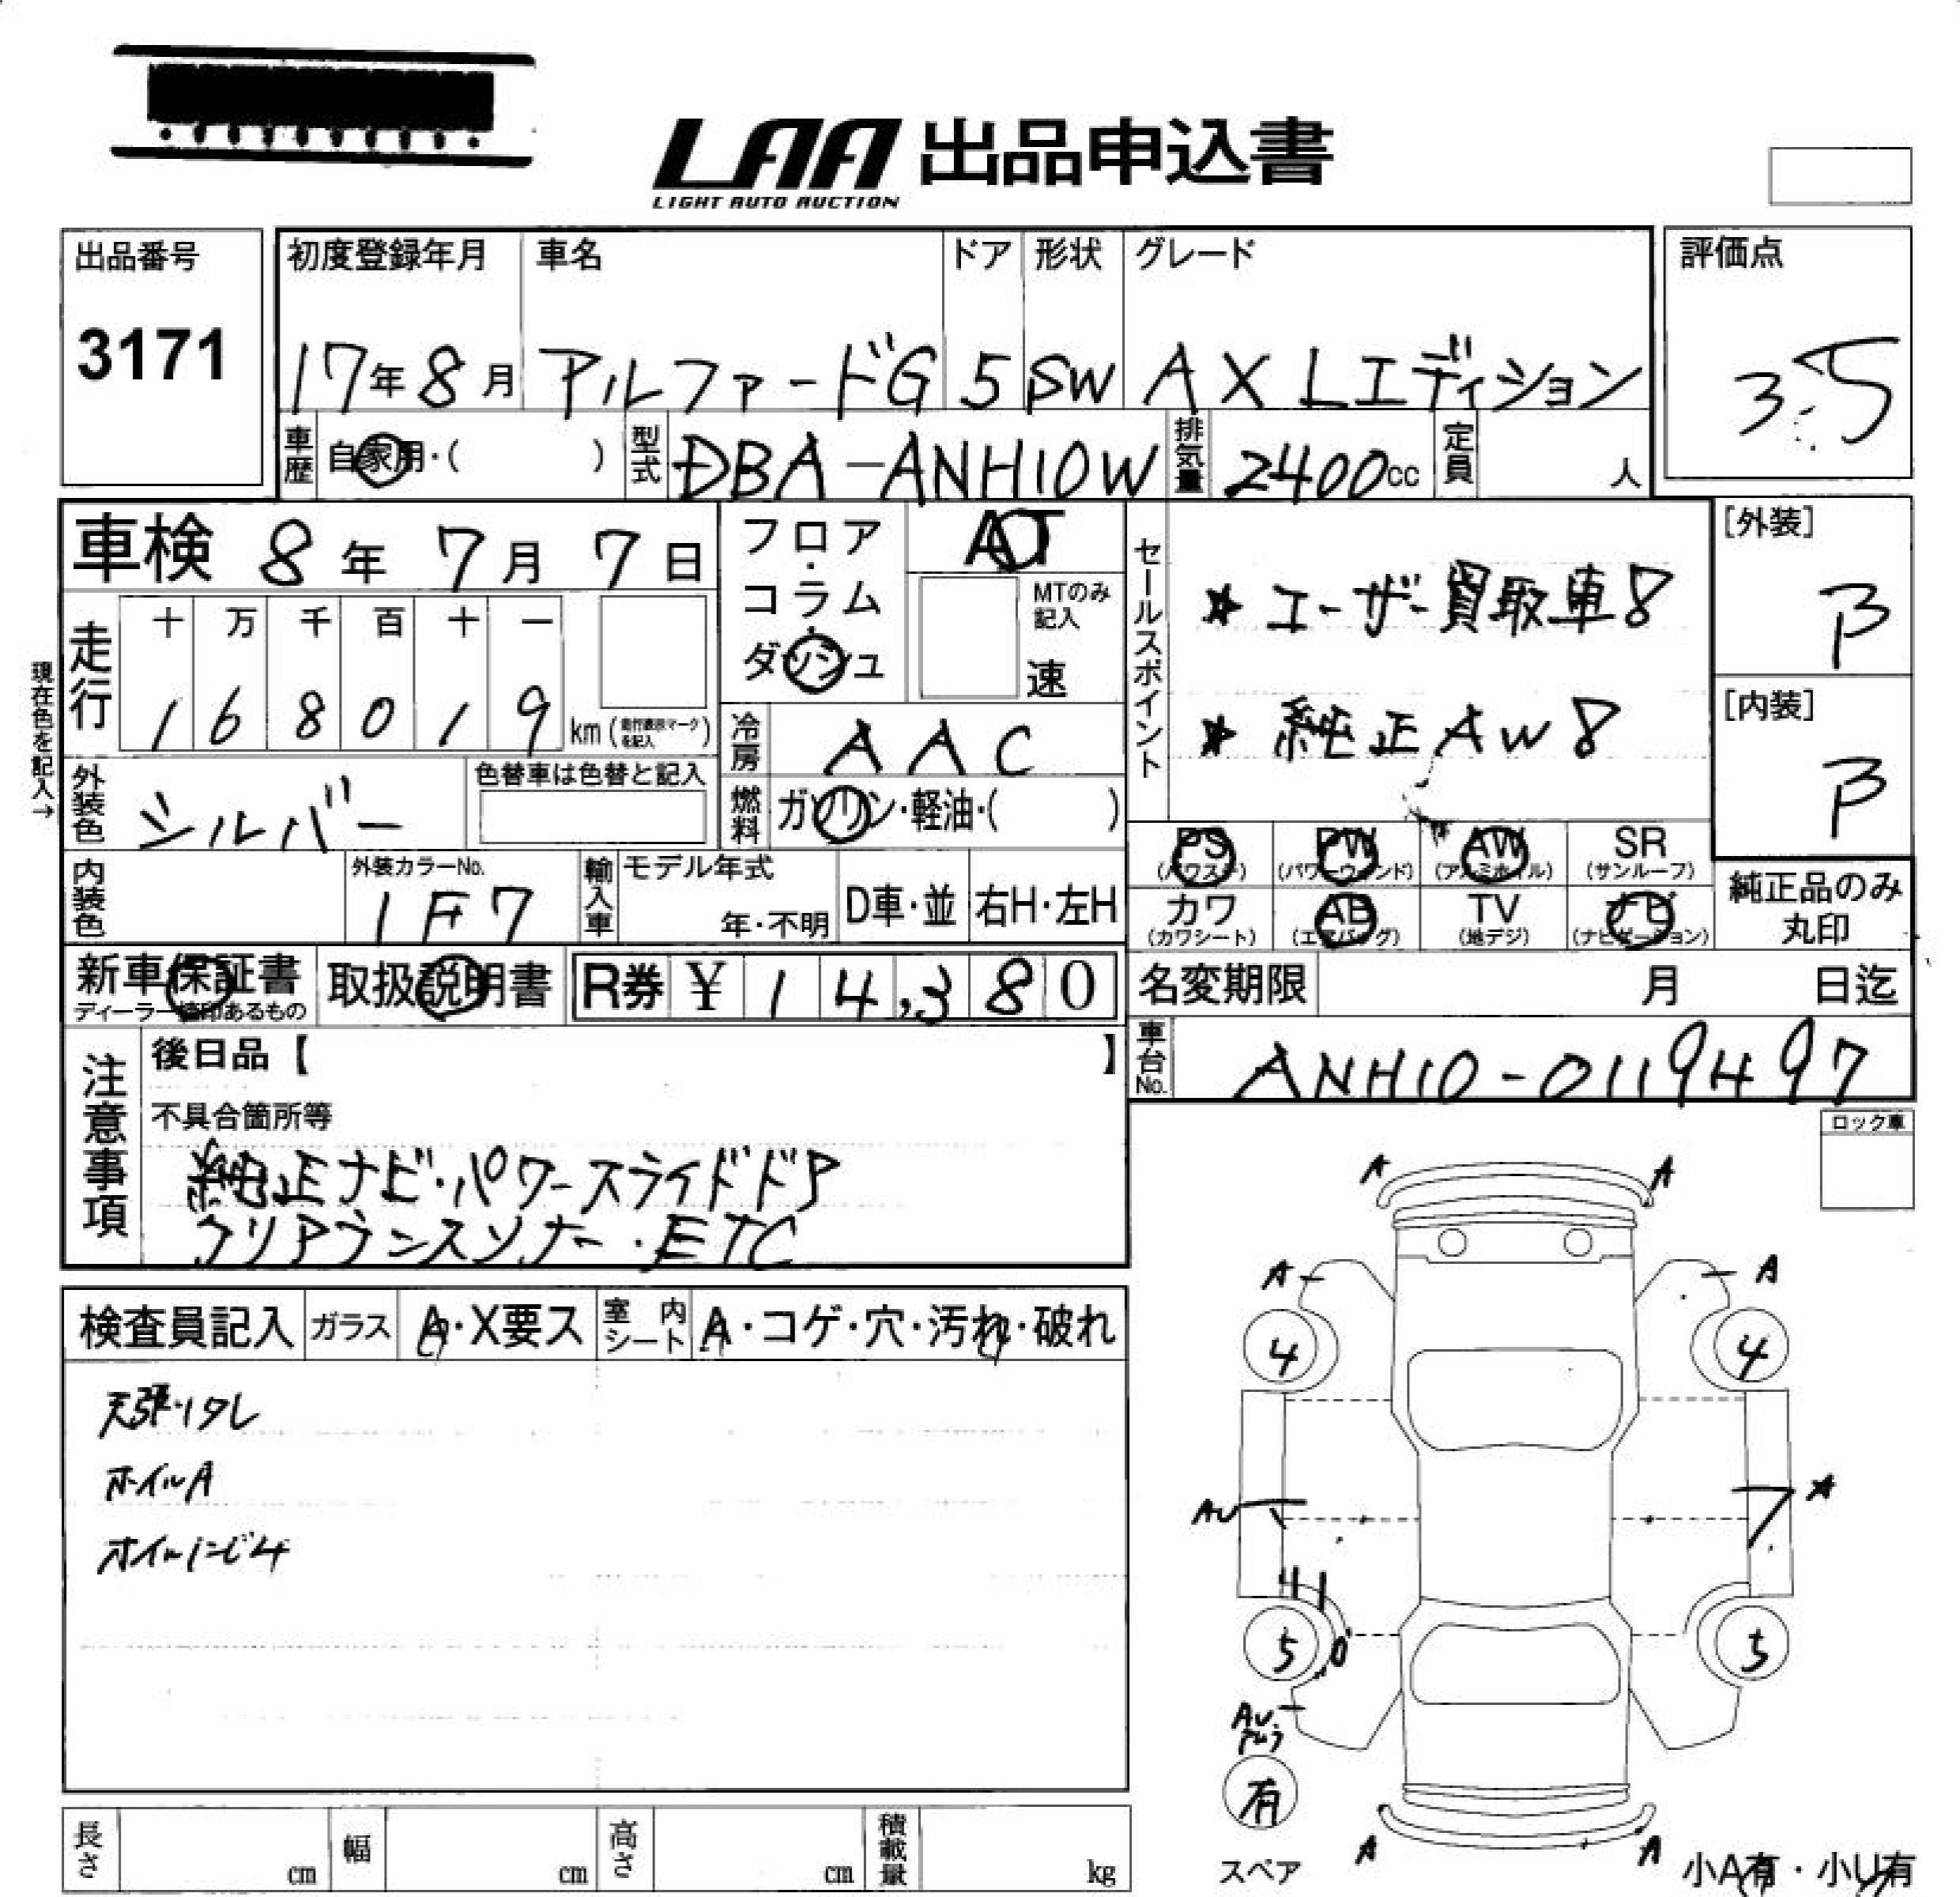 LAA 出品申込書
LIGHT AUTO AUCTION
出品番号
3171
初度登録年月
17年8月
車名
アルファードG
ドア
5
形状
SW
グレード
AX Lエディション
評価点
3.5
車歴 自家用・( )
型式 DBA-ANH10W
排気量 2400cc
定員 人
車検 8年 7月 7日
フロア・コラム・ダッシュ
AT
MTのみ記入
速
セールスポイント
★ユーザー買取車8
★純正AW8
[外装]
B
[内装]
B
現在色を記入→
走行
十 万 千 百 十 一
1 6 8 0 1 9 km (走行表示マークを記入)
冷房 AAC
外装色 シルバー
色替車は色替と記入
燃料 ガソリン・軽油・( )
PS (パワステ) PW (パワーウィンド) AW (アルミホイル) SR (サンルーフ)
カワ (カワシート) AB (エアバッグ) TV (地デジ) ナビ (ナビゲーション)
純正品のみ丸印
内装色
外装カラーNo.
1F7
輸入車 モデル年式
年・不明
D車・並 右H・左H
新車保証書
ディーラー捺印あるもの
取扱説明書
R券 ¥ 14,380
名変期限 月 日迄
車台No. ANH10-0119497
注意事項
後日品【 】
不具合箇所等
純正ナビ・パワースライドドア
クリアランスソナー・ETC
ロック車
検査員記入 ガラス A・X要ス 室内シート A・コゲ・穴・汚れ・破れ
天張りタレ
ホイルA
ホイルにじ4
A A
A A
4 4
AU
A
5 5
AU
有
スペア
A A
小A有・小U有
長さ cm 幅 cm 高さ cm 積載量 kg